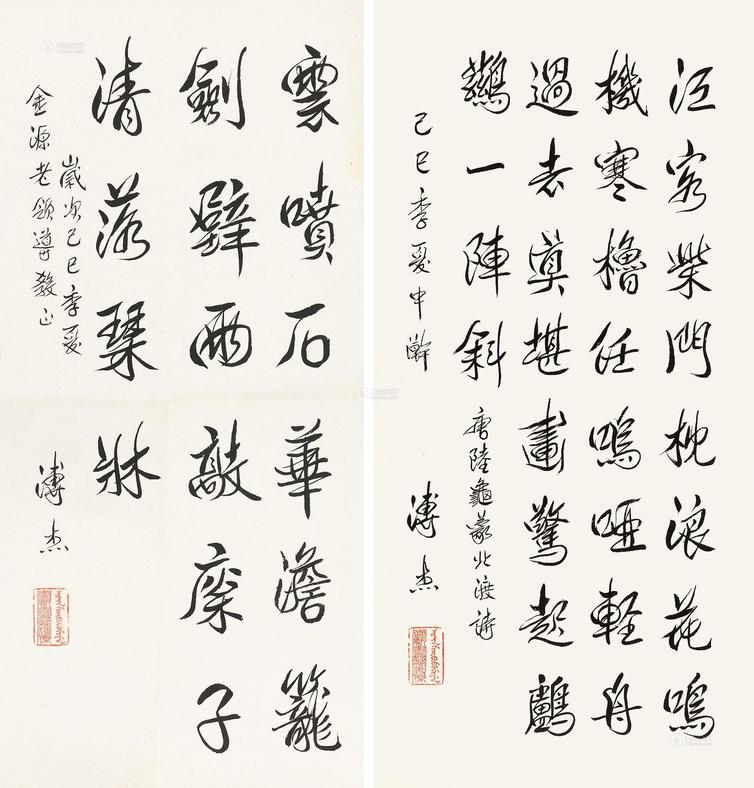 江客柴門枕浪花鳴
機寒櫓任嗚啞輕舟
過去真堪畫驚起鸕
鷀一陣斜
唐陸龜蒙北渡詩
己巳季夏中澣
溥杰
雲噴石華澹籠
劍壁雨敲子
清落琴牀
歲次己巳季夏
金源老領導教正
溥杰